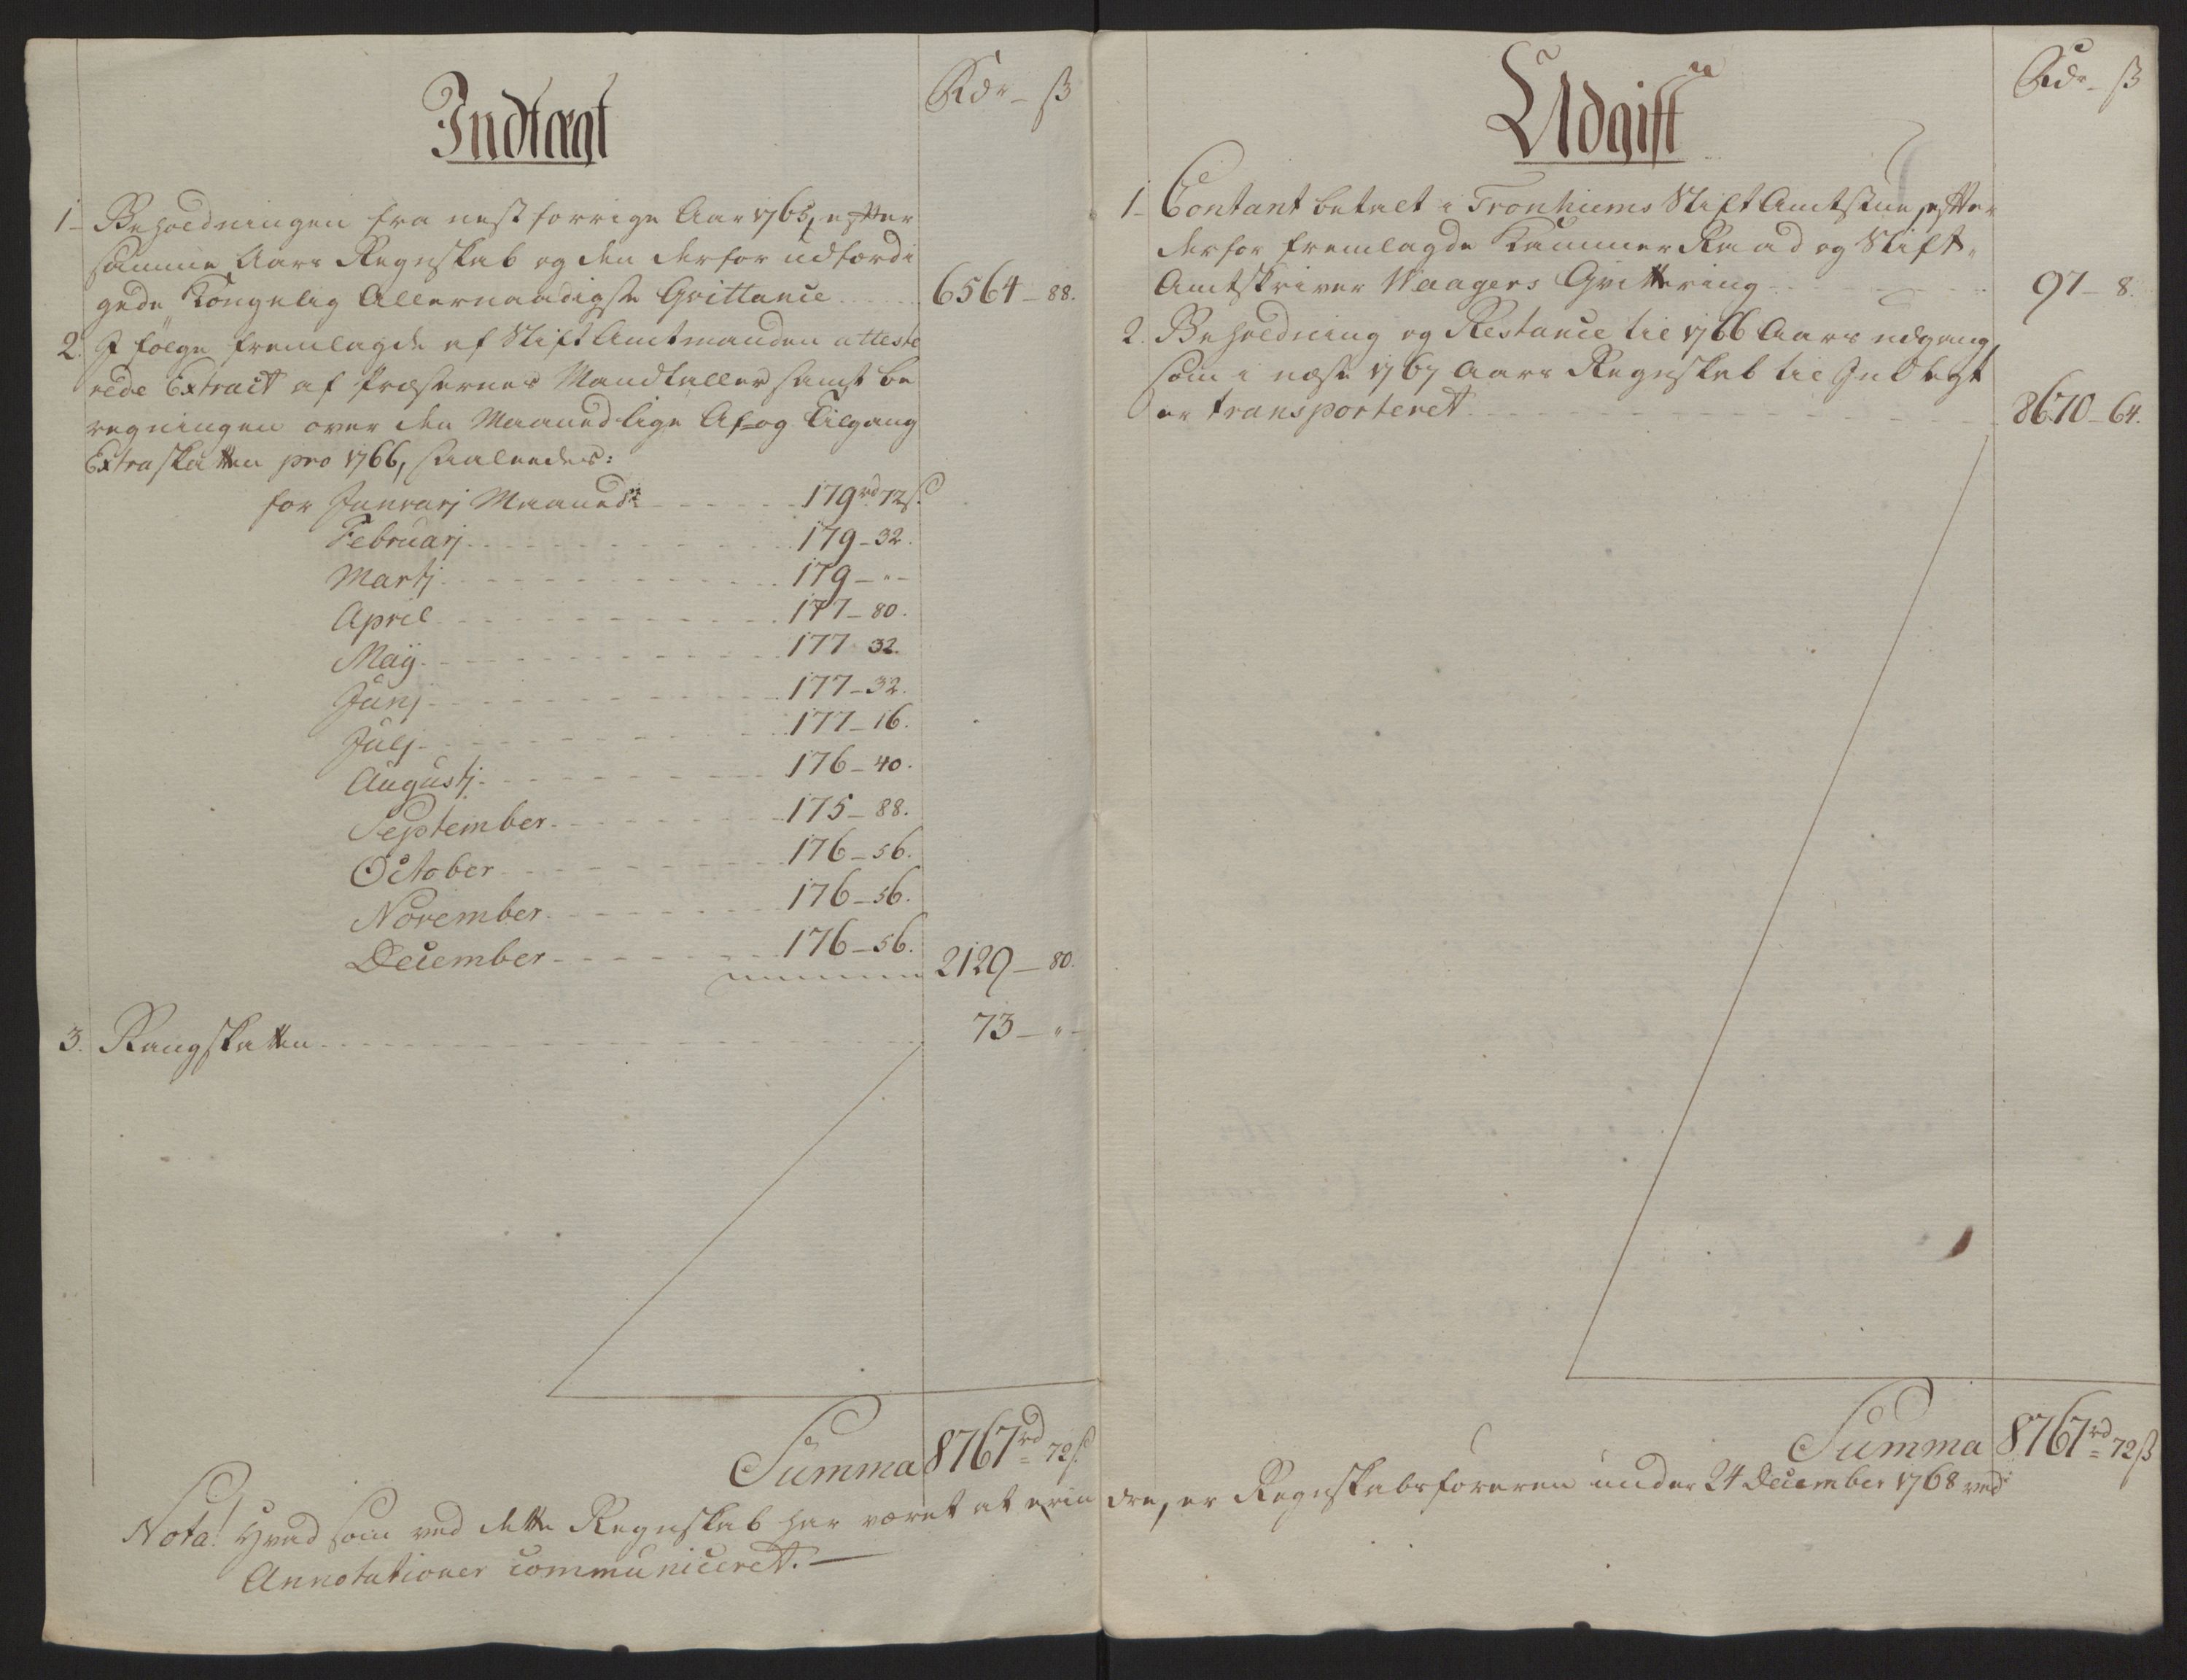 Indtægt
Rdr - ß
1 - Beholdningen fra nest forrige Aar 1765, efter
samme Aars Regnskab og den derfor udfærdi
gede Kongelig Allernaadigste Qvittance 6564 - 88.
2. I følge fremlagde af StiftAmtmanden atteste
rede Extract af Præsternes Mandtaller samt be
regningen over den Maanedlige Af- og Tilgang
Extraskatten pro 1766, saaledes:
for Januarj Maaned 179 rd 72 s.
Februarj 179 - 32.
Martj 179 - " -
April 177 - 80.
Maÿ 177 32.
Junj 177 - 32.
Julj 177 - 16.
Augustj 176 - 40.
September 175 - 88.
October 176 - 56.
November 176 - 56.
December 176 - 56. 2129 - 80.
3. Rangskatten 73 - " -
Summa 8767 rd 72 ß
Udgift
Rdr - ß
1 - Contant betalt i Tronhiems Stift Amtstue, efter
derfor fremlagde Kammer Raad og Stift-
Amtskriver Waagers Qvittering 97 - 8.
2. Beholdning og Restance til 1766 Aars udgang,
som i næste 1767 Aars Regnskab til Indtegt
er transporteret 8670 - 64.
Summa 8767 rd 72 ß
Nota! Hvad som ved dette Regnskab har været at erindre, er Regnskabsføreren under 24 December 1768 ved
Annotationer communiceret. —